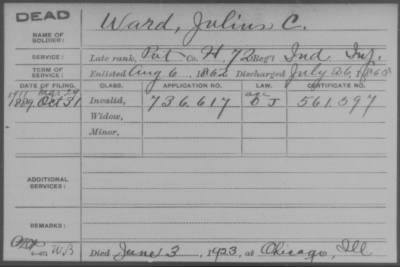 DEAD
Ward, Julius C.
NAME OF SOLDIER:
SERVICE: Late rank, Pvt Co. H, 72 Reg't Ind. Inf.
TERM OF SERVICE: Enlisted Aug 6, 1862 Discharged July 26, 1865
DATE OF FILING. CLASS. APPLICATION NO. LAW. CERTIFICATE NO.
1889, Oct 31 Invalid, 736.617 J 561.597
Widow,
Minor,
ADDITIONAL SERVICES:
REMARKS:
W.B
Died June 3, 1923, at Chicago, Ill